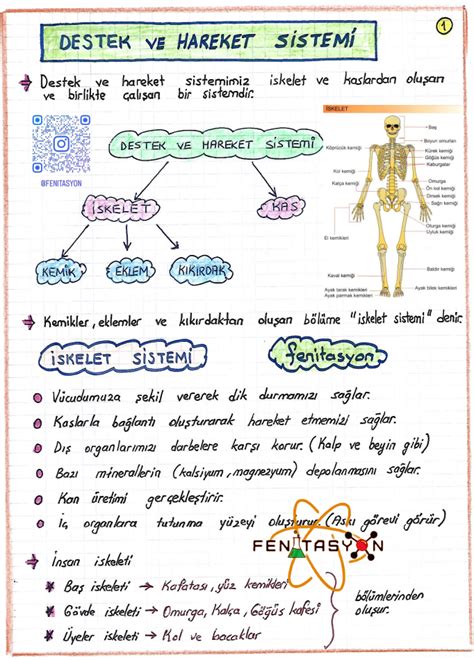 1
DESTEK VE HAREKET SİSTEMİ
Destek ve hareket sistemimiz iskelet ve kaslardan oluşan
ve birlikte çalışan bir sistemdir.
@FENITASYON
DESTEK VE HAREKET SİSTEMİ
İSKELET
KAS
KEMİK
EKLEM
KIKIRDAK
İSKELET
Baş
Boyun omurları
Köprücük kemiği
Kürek kemiği
Göğüs kemiği
Kaburgalar
Kol kemiği
Kalça kemiği
Omurga
Ön kol kemiği
Dirsek kemiği
Sağrı kemiği
Oturga kemiği
Uyluk kemiği
El kemikleri
Kaval kemiği
Baldır kemiği
Ayak tarak kemikleri
Ayak bilek kemikleri
Ayak parmak kemikleri
Kemikler, eklemler ve kıkırdaktan oluşan bölüme "iskelet sistemi" denir.
İSKELET SİSTEMİ
fenitasyon
Vücudumuza şekil vererek dik durmamızı sağlar.
Kaslarla bağlantı oluşturarak hareket etmemizi sağlar.
Dış organlarımızı darbelere karşı korur. (Kalp ve beyin gibi)
Bazı minerallerin (kalsiyum, magnezyum) depolanmasını sağlar.
Kan üretimi gerçekleştirir.
İç organlara tutunma yüzeyi oluşturur. (Askı görevi görür)
FENITASYON
İnsan iskeleti
Baş iskeleti → Kafatası, yüz kemikleri
Gövde iskeleti → Omurga, Kalça, Göğüs kafesi
Üyeler iskeleti → Kol ve bacaklar
bölümlerinden
oluşur.